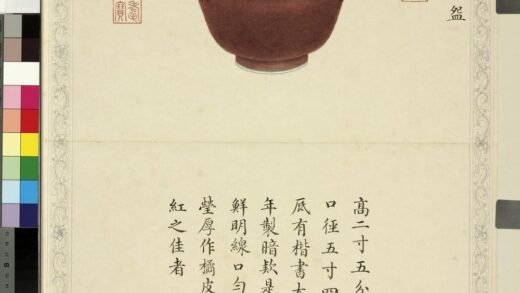 盌
高二寸五分
口徑五寸四
底有楷書大
年製暗款是
鮮明線口勻
瑩厚作橘皮
紅之佳者